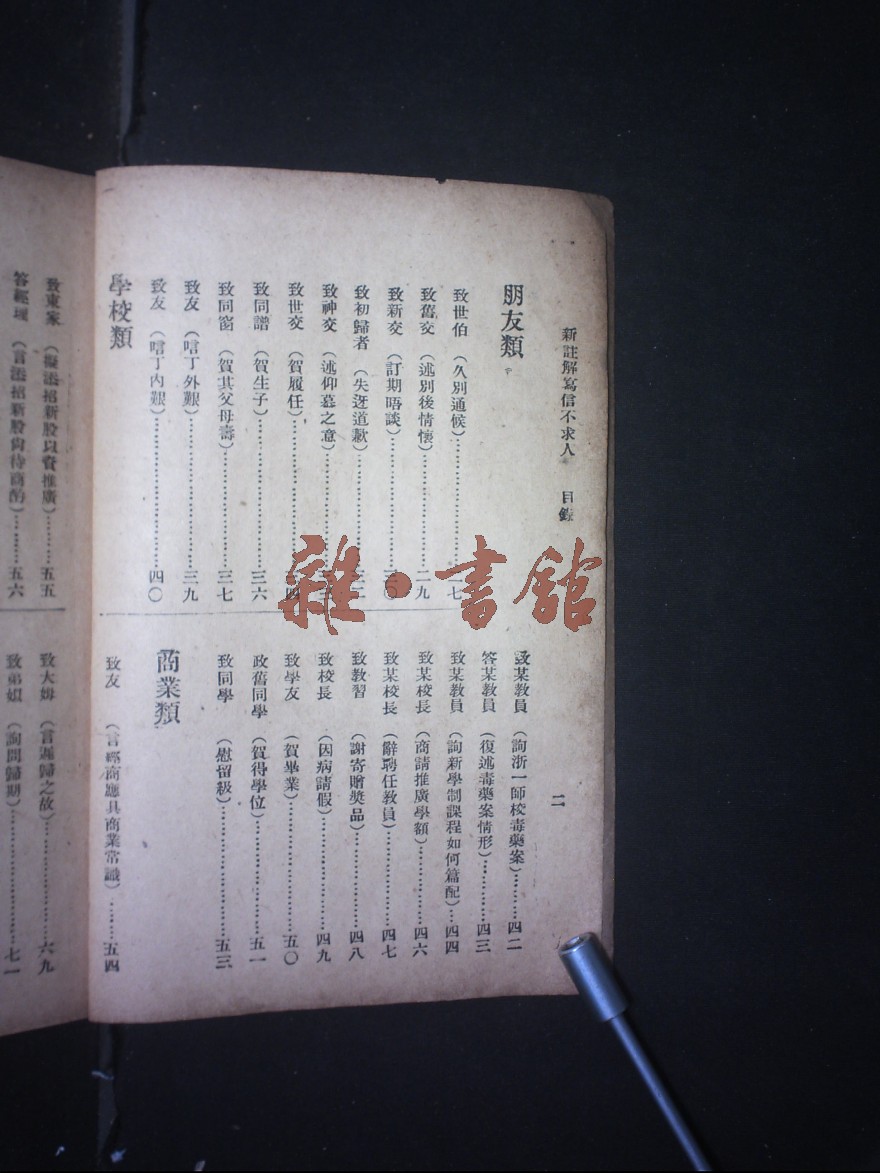 新註解寫信不求人 目錄 二
朋友類
致世伯 (久別通候)………………二七
致舊交 (述別後情懷)……………二九
致新交 (訂期晤談)………………三〇
致初歸者 (失迓道歉)……………三二
致神交 (述仰慕之意)……………三三
致世交 (賀履任)…………………三四
致同譜 (賀生子)…………………三六
致同窗 (賀其父母壽)……………三七
致友 (唁丁外艱)…………………三九
致友 (唁丁內艱)…………………四〇
學校類
致某教員 (詢浙一師校毒藥案)………四二
答某教員 (復述毒藥案情形)………四三
致某教員 (詢新學制課程如何篇配)…四四
致某校長 (商請推廣學額)…………四六
致某校長 (辭聘任教員)……………四七
致教習 (謝寄贈獎品)………………四八
致校長 (因病請假)…………………四九
致學友 (賀畢業)……………………五〇
政舊同學 (賀得學位)………………五一
致同學 (慰留級)……………………五三
商業類
致友 (言經商應具商業常識)………五四
致東家 (擬添招新股以資推廣)………五五
答經理 (言添招新股尚待商酌)………五六
致大姆 (言遲歸之故)………………六九
致弟娘 (詢問歸期)…………………七一
雜·書館